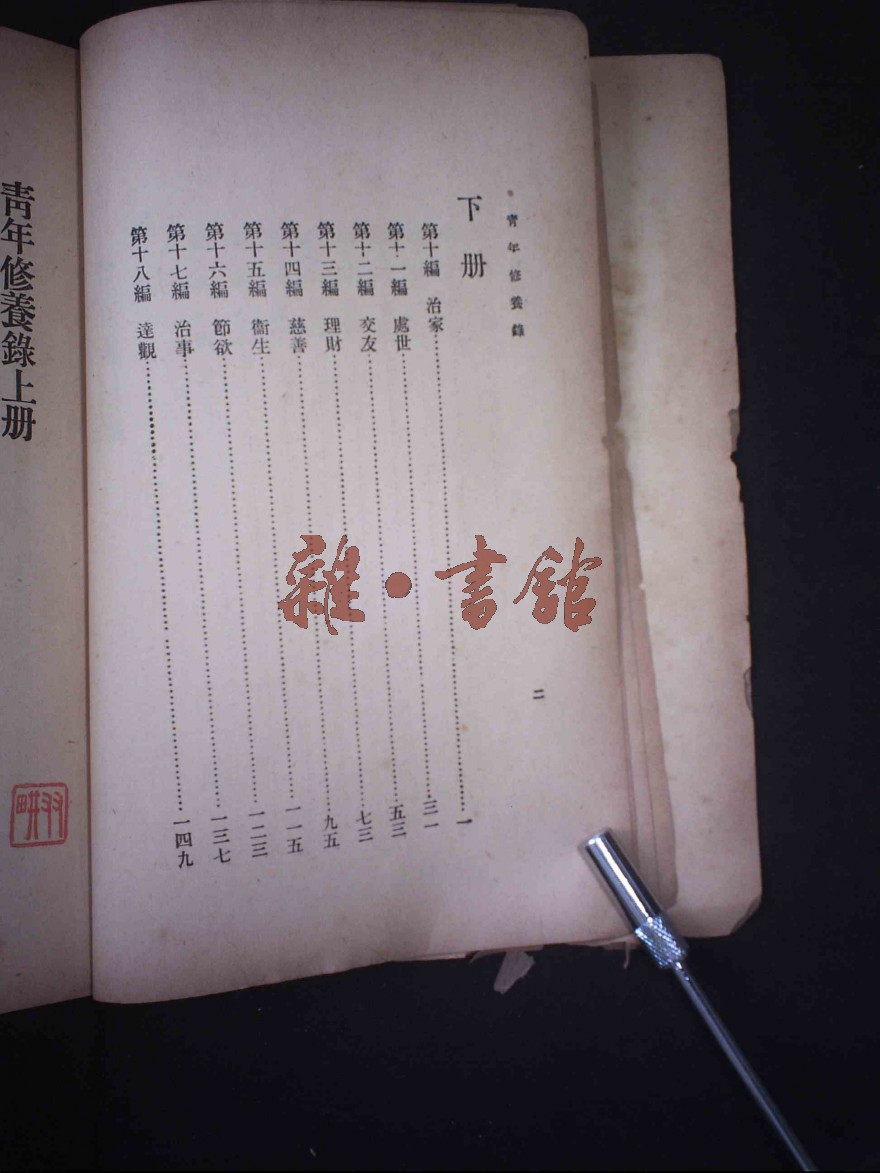 青年修養錄
下册
第十編 治家……一
第十一編 處世……三一
第十二編 交友……五三
第十三編 理財……七三
第十四編 慈善……九五
第十五編 衞生……一一五
第十六編 節欲……一二三
第十七編 治事……一三七
第十八編 達觀……一四九
二
青年修養錄上册
雜·書館